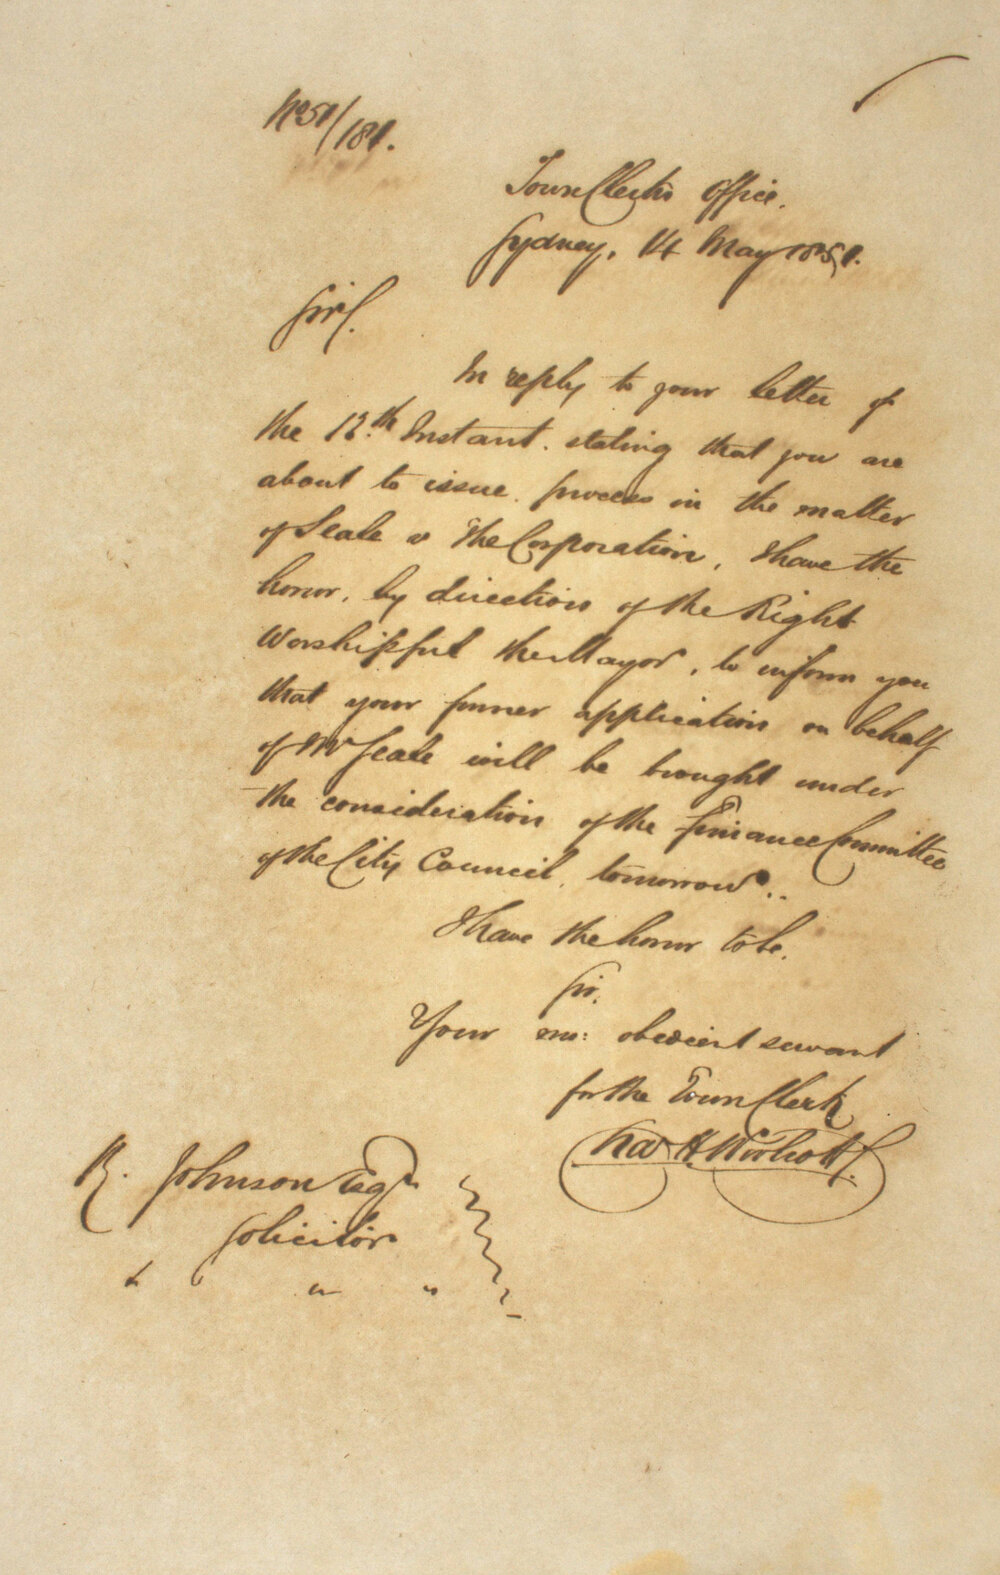 No 51/181.
Town Clerk's Office.
Sydney, 14 May 1851.
Sir,
In reply to your letter of
the 12.th Instant. stating that you are
about to issue process in the matter
of Seale v The Corporation, I have the
honor, by direction of the Right
Worshipful the Mayor, to inform you
that your former application on behalf
of Mr Seale will be brought under
the consideration of the Finance Committee
of the City Council, tomorrow..
I have the honor to be.
Sir.
Your mo: obedient servant
for the Town Clerk
Chas H. Woolcott
R. Johnson Esqr
Solicitor